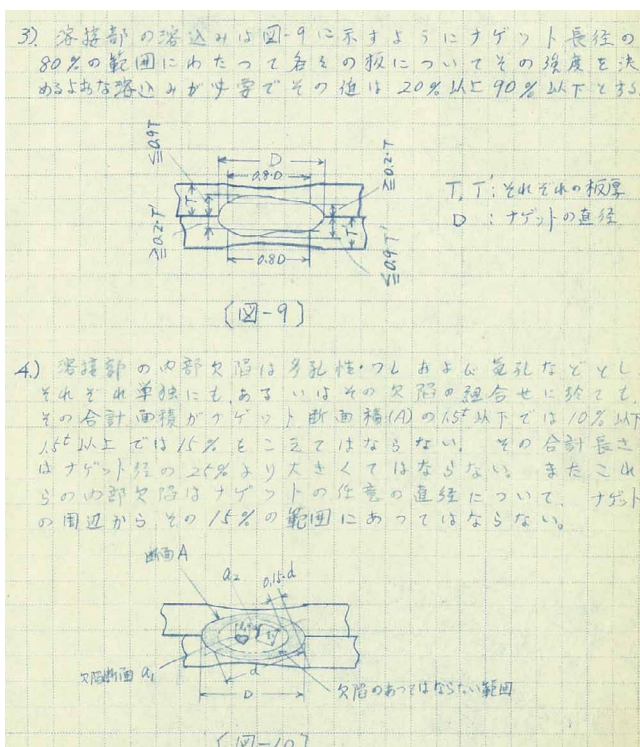 3). 溶接部の溶込みは図-9に示すようにナゲット長径の
80%の範囲にわたって各々の板についてその強度を決
めるような溶込みが必要でその値は20%以上90%以下とする
≦0.9T
D
0.8・D
≧0.2・T
T
T'
≧0.2・T'
0.8D
≦0.9T'
T, T': それぞれの板厚
D : ナゲットの直径
〔図-9〕
4.) 溶接部の内部欠陥は多孔性・ワレおよび気孔などとし
それぞれ単独にも、あるいはその欠陥の組合せに於ても、
その合計面積がナゲット断面積(A)の1.5t以下では10%以下
1.5t以上では15%をこえてはならない。その合計長さ
はナゲット径の25%より大きくてはならない。またこれ
らの内部欠陥はナゲットの任意の直径について、ナゲット
の周辺からその15%の範囲にあってはならない。
断面A
a2
0.15・d
欠陥断面 a1
d
D
欠陥のあってはならない範囲
〔図-10〕